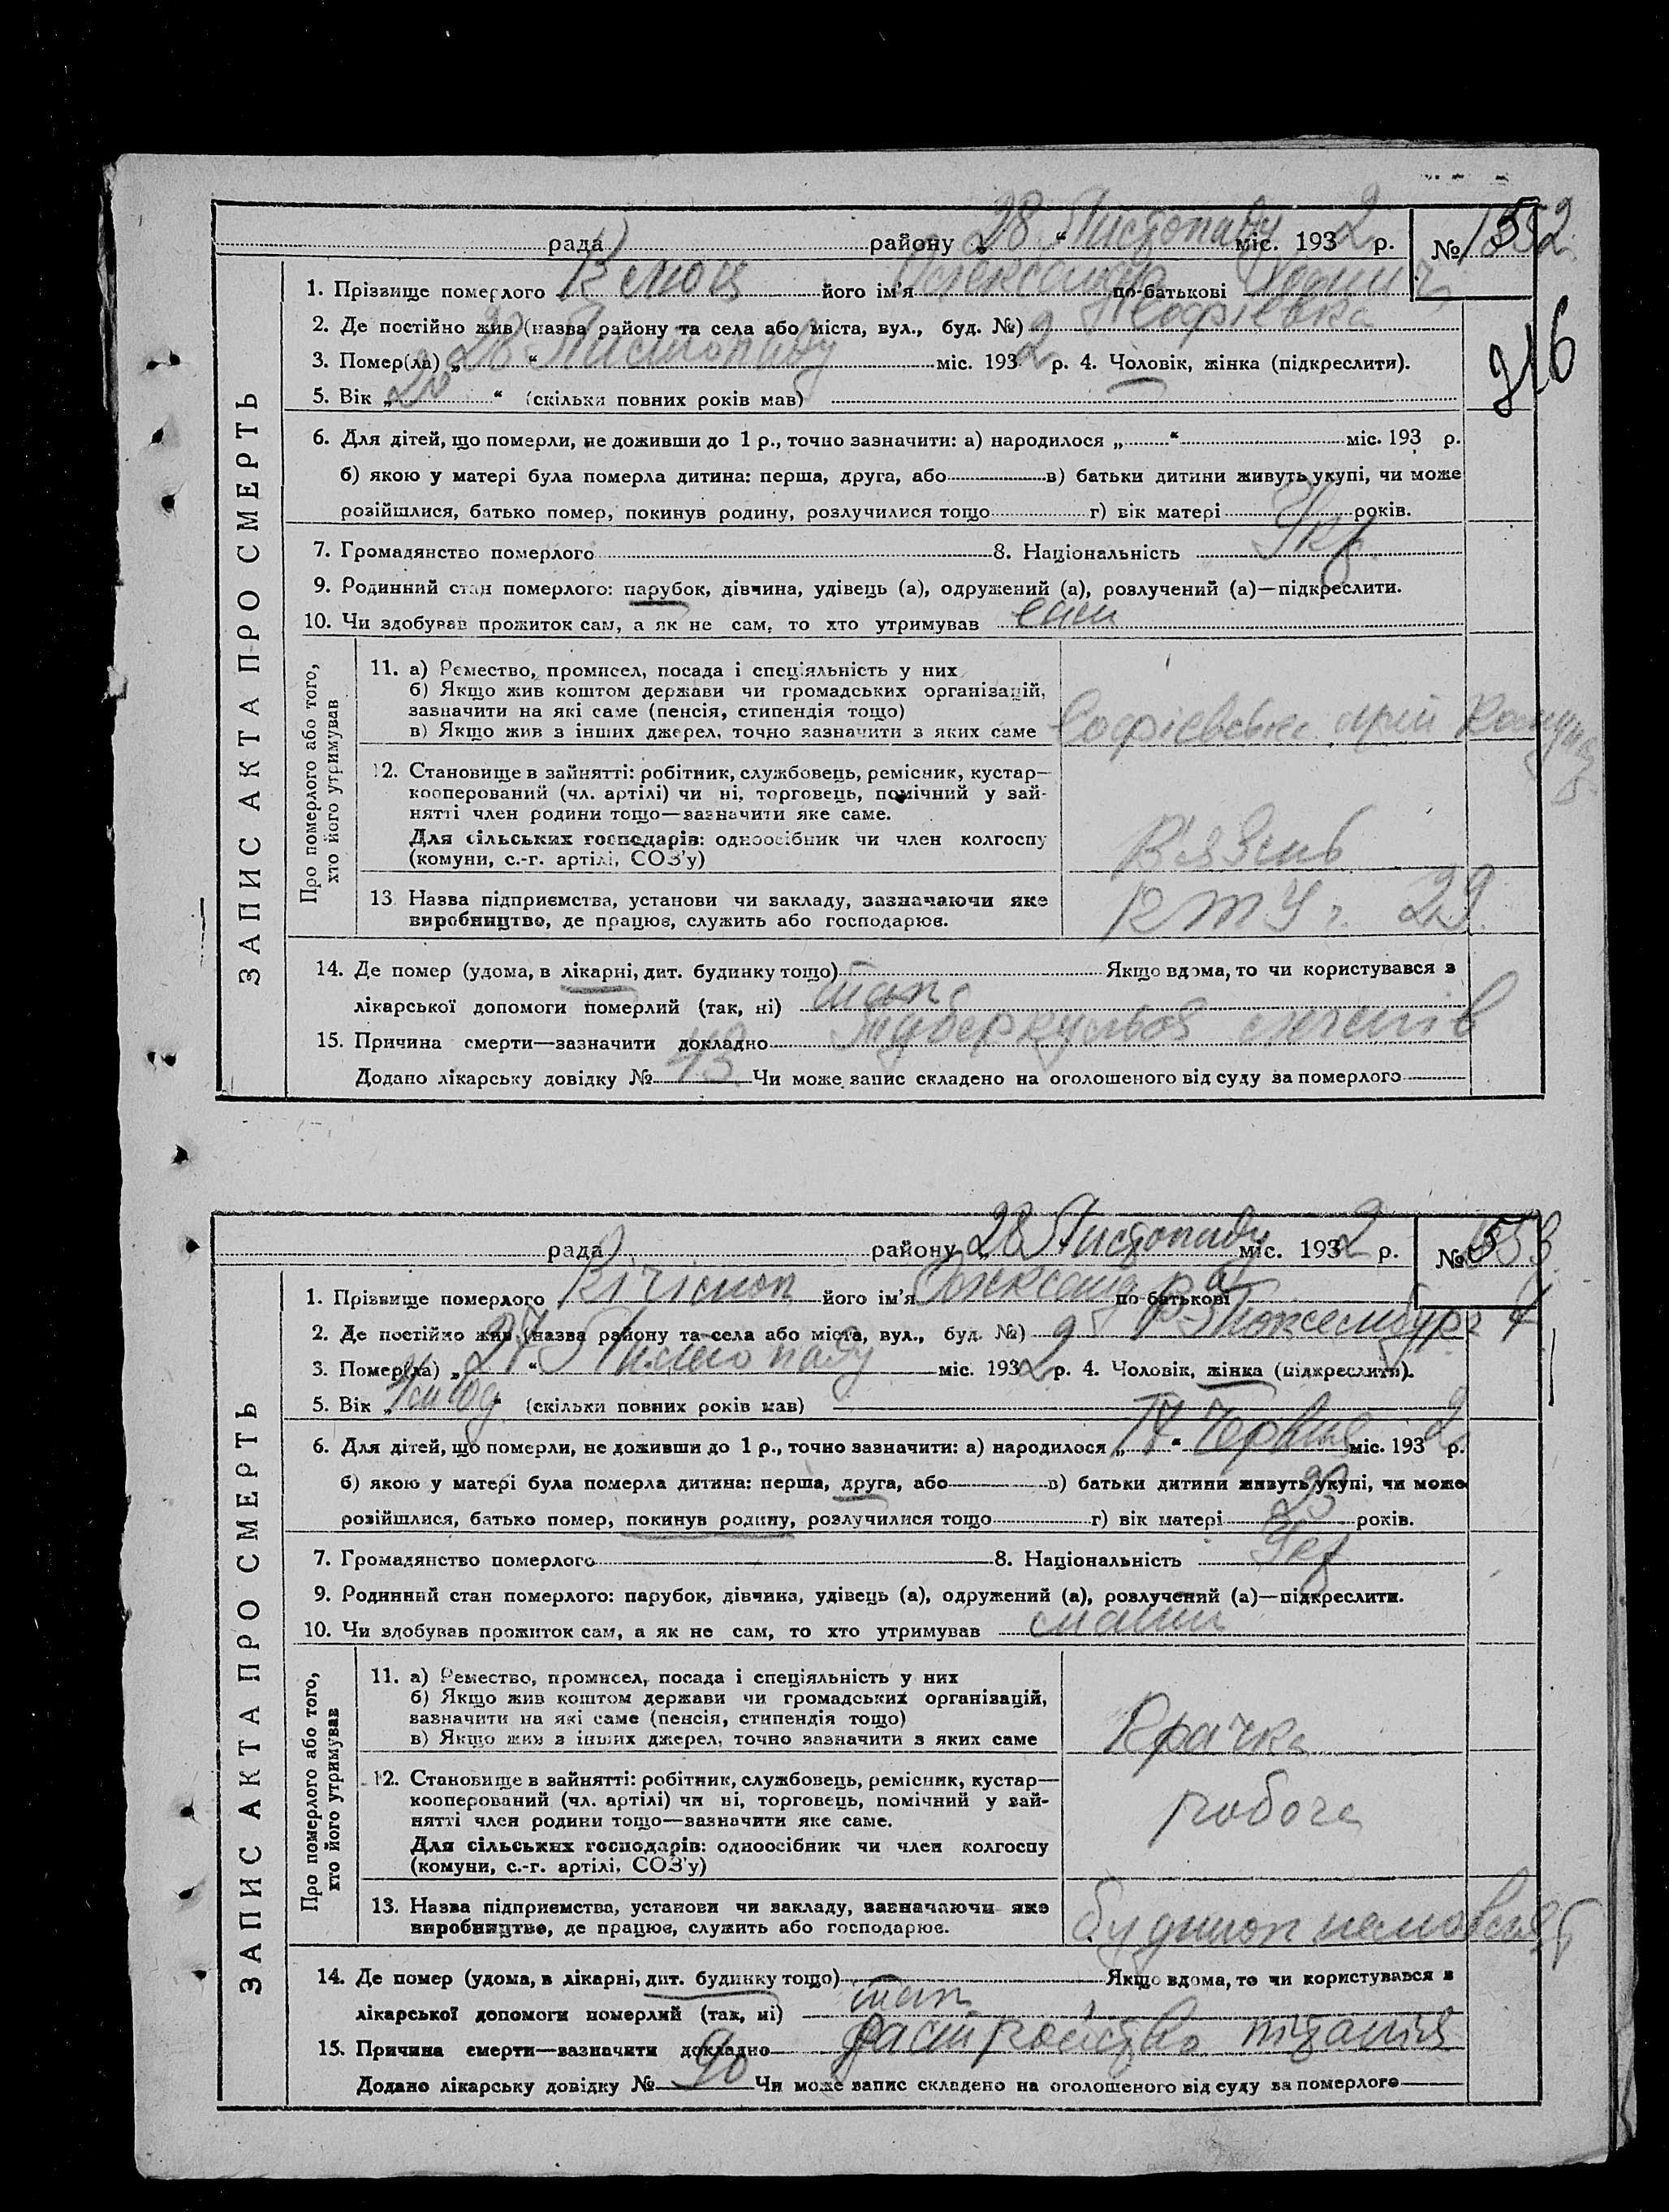 рада района „28“ Листопаду міс. 1932 р. № 1552
1. Прізвище померлого його ім'я Олександр по-батькові
2. Де постійно жив (назва району та села або міста, вул., буд. №) Софієвка
3. Помер(ла) „28“ Листопаду міс. 1932 р. 4. Чоловік, жінка (підкреслити).
5. Вік „20“ (скільки повних років мав)
316
6. Для дітей, що померли, не доживши до 1 р., точно зазначити: а) народилося „ “ міс. 193 р.
б) якою у матері була померла дитина: перша, друга, або в) батьки дитини живуть укупі, чи може
розійшлися, батько помер, покинув родину, розлучилися тощо г) вік матері років.
7. Громадянство померлого 8. Національність Укр
9. Родинний стан померлого: парубок, дівчина, удівець (а), одружений (а), розлучений (а)—підкреслити.
10. Чи здобував прожиток сам, а як не сам, то хто утримував сам
ЗАПИС АКТА ПРО СМЕРТЬ
Про померлого або того, хто його утримував
11. а) Ремество, промисел, посада і спеціяльність у них
б) Якщо жив коштом держави чи громадських організацій,
зазначити на які саме (пенсія, стипендія тощо)
в) Якщо жив з інших джерел, точно зазначити з яких саме
12. Становище в зайнятті: робітник, службовець, ремісник, кустар—
кооперований (чл. артілі) чи ні, торговець, помічний у зай-
нятті член родини тощо—зазначити яке саме.
Для сільських господарів: одноосібник чи член колгоспу
(комуни, с.-г. артілі, СОЗ'у)
Вязень
13. Назва підприємства, установи чи закладу, зазначаючи яке
виробництво, де працює, служить або господарює.
29
14. Де помер (удома, в лікарні, дит. будинку тощо) Якщо вдома, то чи користувався з
лікарської допомоги померлий (так, ні) так
15. Причина смерти—зазначити докладно туберкульоз легенів
Додано лікарську довідку № 43 Чи може запис складено на оголошеного від суду за померлого
рада району „28 Листопаду міс. 1932 р. № 1553
1. Прізвище померлого його ім'я Олександра по-батькові
2. Де постійно жив (назва району та села або міста, вул., буд. №) Р. Люксембург 4
3. Помер(ла) „27“ Листопаду міс. 1932 р. 4. Чоловік, жінка (підкреслити).
5. Вік „ “ (скільки повних років мав)
6. Для дітей, що померли, не доживши до 1 р., точно зазначити: а) народилося „ “ Червня міс. 1932 р.
б) якою у матері була померла дитина: перша, друга, або в) батьки дитини живуть укупі, чи може
розійшлися, батько помер, покинув родину, розлучилися тощо г) вік матері років.
7. Громадянство померлого 8. Національність Укр
9. Родинний стан померлого: парубок, дівчина, удівець (а), одружений (а), розлучений (а)—підкреслити.
10. Чи здобував прожиток сам, а як не сам, то хто утримував мати
ЗАПИС АКТА ПРО СМЕРТЬ
Про померлого або того, хто його утримував
11. а) Ремество, промисел, посада і спеціяльність у них
б) Якщо жив коштом держави чи громадських організацій,
зазначити на які саме (пенсія, стипендія тощо)
в) Якщо жив з інших джерел, точно зазначити з яких саме
Прачка
12. Становище в зайнятті: робітник, службовець, ремісник, кустар—
кооперований (чл. артілі) чи ні, торговець, помічний у зай-
нятті член родини тощо—зазначити яке саме.
Для сільських господарів: одноосібник чи член колгоспу
(комуни, с.-г. артілі, СОЗ'у)
робоча
13. Назва підприємства, установи чи закладу, зазначаючи яке
виробництво, де працює, служить або господарює.
будинок немовлят
14. Де помер (удома, в лікарні, дит. будинку тощо) Якщо вдома, то чи користувався з
лікарської допомоги померлий (так, ні) так
15. Причина смерти—зазначити докладно растройство питанія
Додано лікарську довідку № 90 Чи може запис складено на оголошеного від суду за померлого